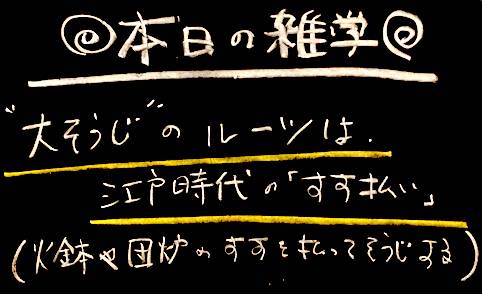 本日の雑学
"大そうじ"のルーツは、
江戸時代の「すす払い」
(火鉢や団炉のすすを払ってそうじする)